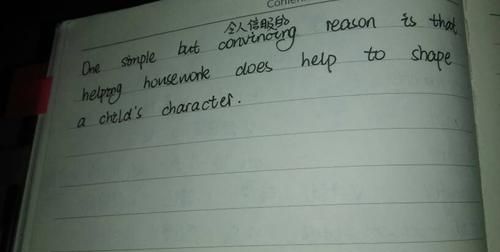 Conten
令人信服的
One simple but convincing reason is that
helping housework does help to shape
a child's character.